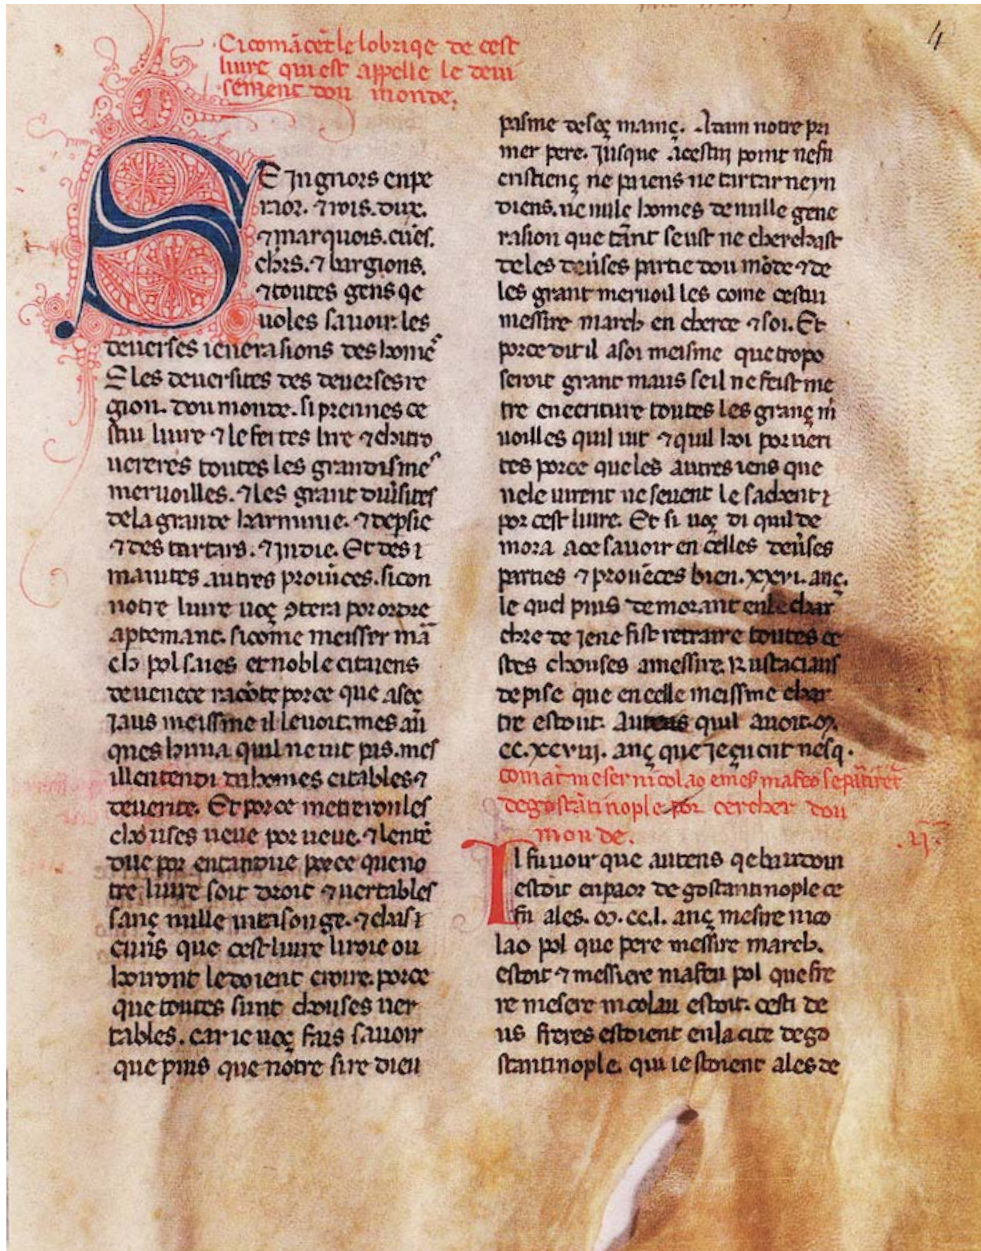 4
Ci comācēt le lobriqe de cest
livre qui est appelle le devi
sement dou monde.
SEingnors enpe
raor. ⁊ rois. dux.
⁊ marquois. cuēs.
chrs. ⁊ bargions.
⁊ toutes gens qe
voles savoir. les
deverses ienerasions des homē
E les deversites des deverses re
gion. dou monde. si prennes ce
stui livre ⁊ le feites lire ⁊ chi trov
vereres toutes les grandisme
mervoilles. ⁊ les grant diūsites
de la grande harminie. ⁊ de psie
⁊ des tartars. ⁊ indie. Et des
maintes autres provīces. si con
notre livre voç ꝯtera por ordre
apertemant. sicome meisser mā
ch pol saies et noble citaiens
de venece racōte por ce que a sec
iaus meissme il le voit. mes au
ques hi nia qu il ne vit pas. mes
il l entendi da homes citables ⁊
de verite. Et por ce metreron les
chouses veue por veue. ⁊ l entē
due por entandue por ce que no
tre livre soit droit ⁊ vertables
sanç nulle mansonge. ⁊ chasi
cuns que cest livre liroie ou
hoiront le doient croire. por ce
que toutes sunt chouses ver
tables. car ie voç fais savoir
que puis que notre sire dieu
pasme de seç mainç. Adam notre pri
mer pere. jusque a cestui point ne fu
cristienç ne paiens ne tartar ne yn
diens. ne nulle homes de nulle gene
rasion que tāt seust ne cherchast
de les deūses partie dou mōde ⁊ de
les grant mervoilles come cestui
messire march en cherce ⁊ soi. Et
por ce dit il a soi meisme que tropo
seroit grant maus se il ne feist me
tre en ecriture toutes les granç m̄
voilles qu il vit ⁊ qu il hoi por veri
tes por ce que les autres iens que
ne le virent ne sevent le sachent
por cest livre. Et si voç di qu il de
mora a ce savoir en celles deūses
parties ⁊ provēces bien. xxvi. anç.
le quel puis demorant en le char
chre de iene fist retraire toutes ce
stes chouses a messire. Rustacians
de pise que en celle meissme char
tre estoit. au tens qu il avoit. ꝏ.
cc. xcviij. anç que ieçucrit nesq.
comāt meser nicolao e meser mafeo se pātirēt
de gostātinople por cercher dou
monde.
.ij.
Il fu voir que au tens qe baudoin
estoit enpaor de gostantinople ce
fu a les. ꝏ. cc. l. anç mesire nico
lao pol que pere messire march.
estoit ⁊ messiere mafeu pol que fre
re mesere nicolau estoit. cesti de
us freres estoient en la cite de go
stantinople. qui ie stoient ales de